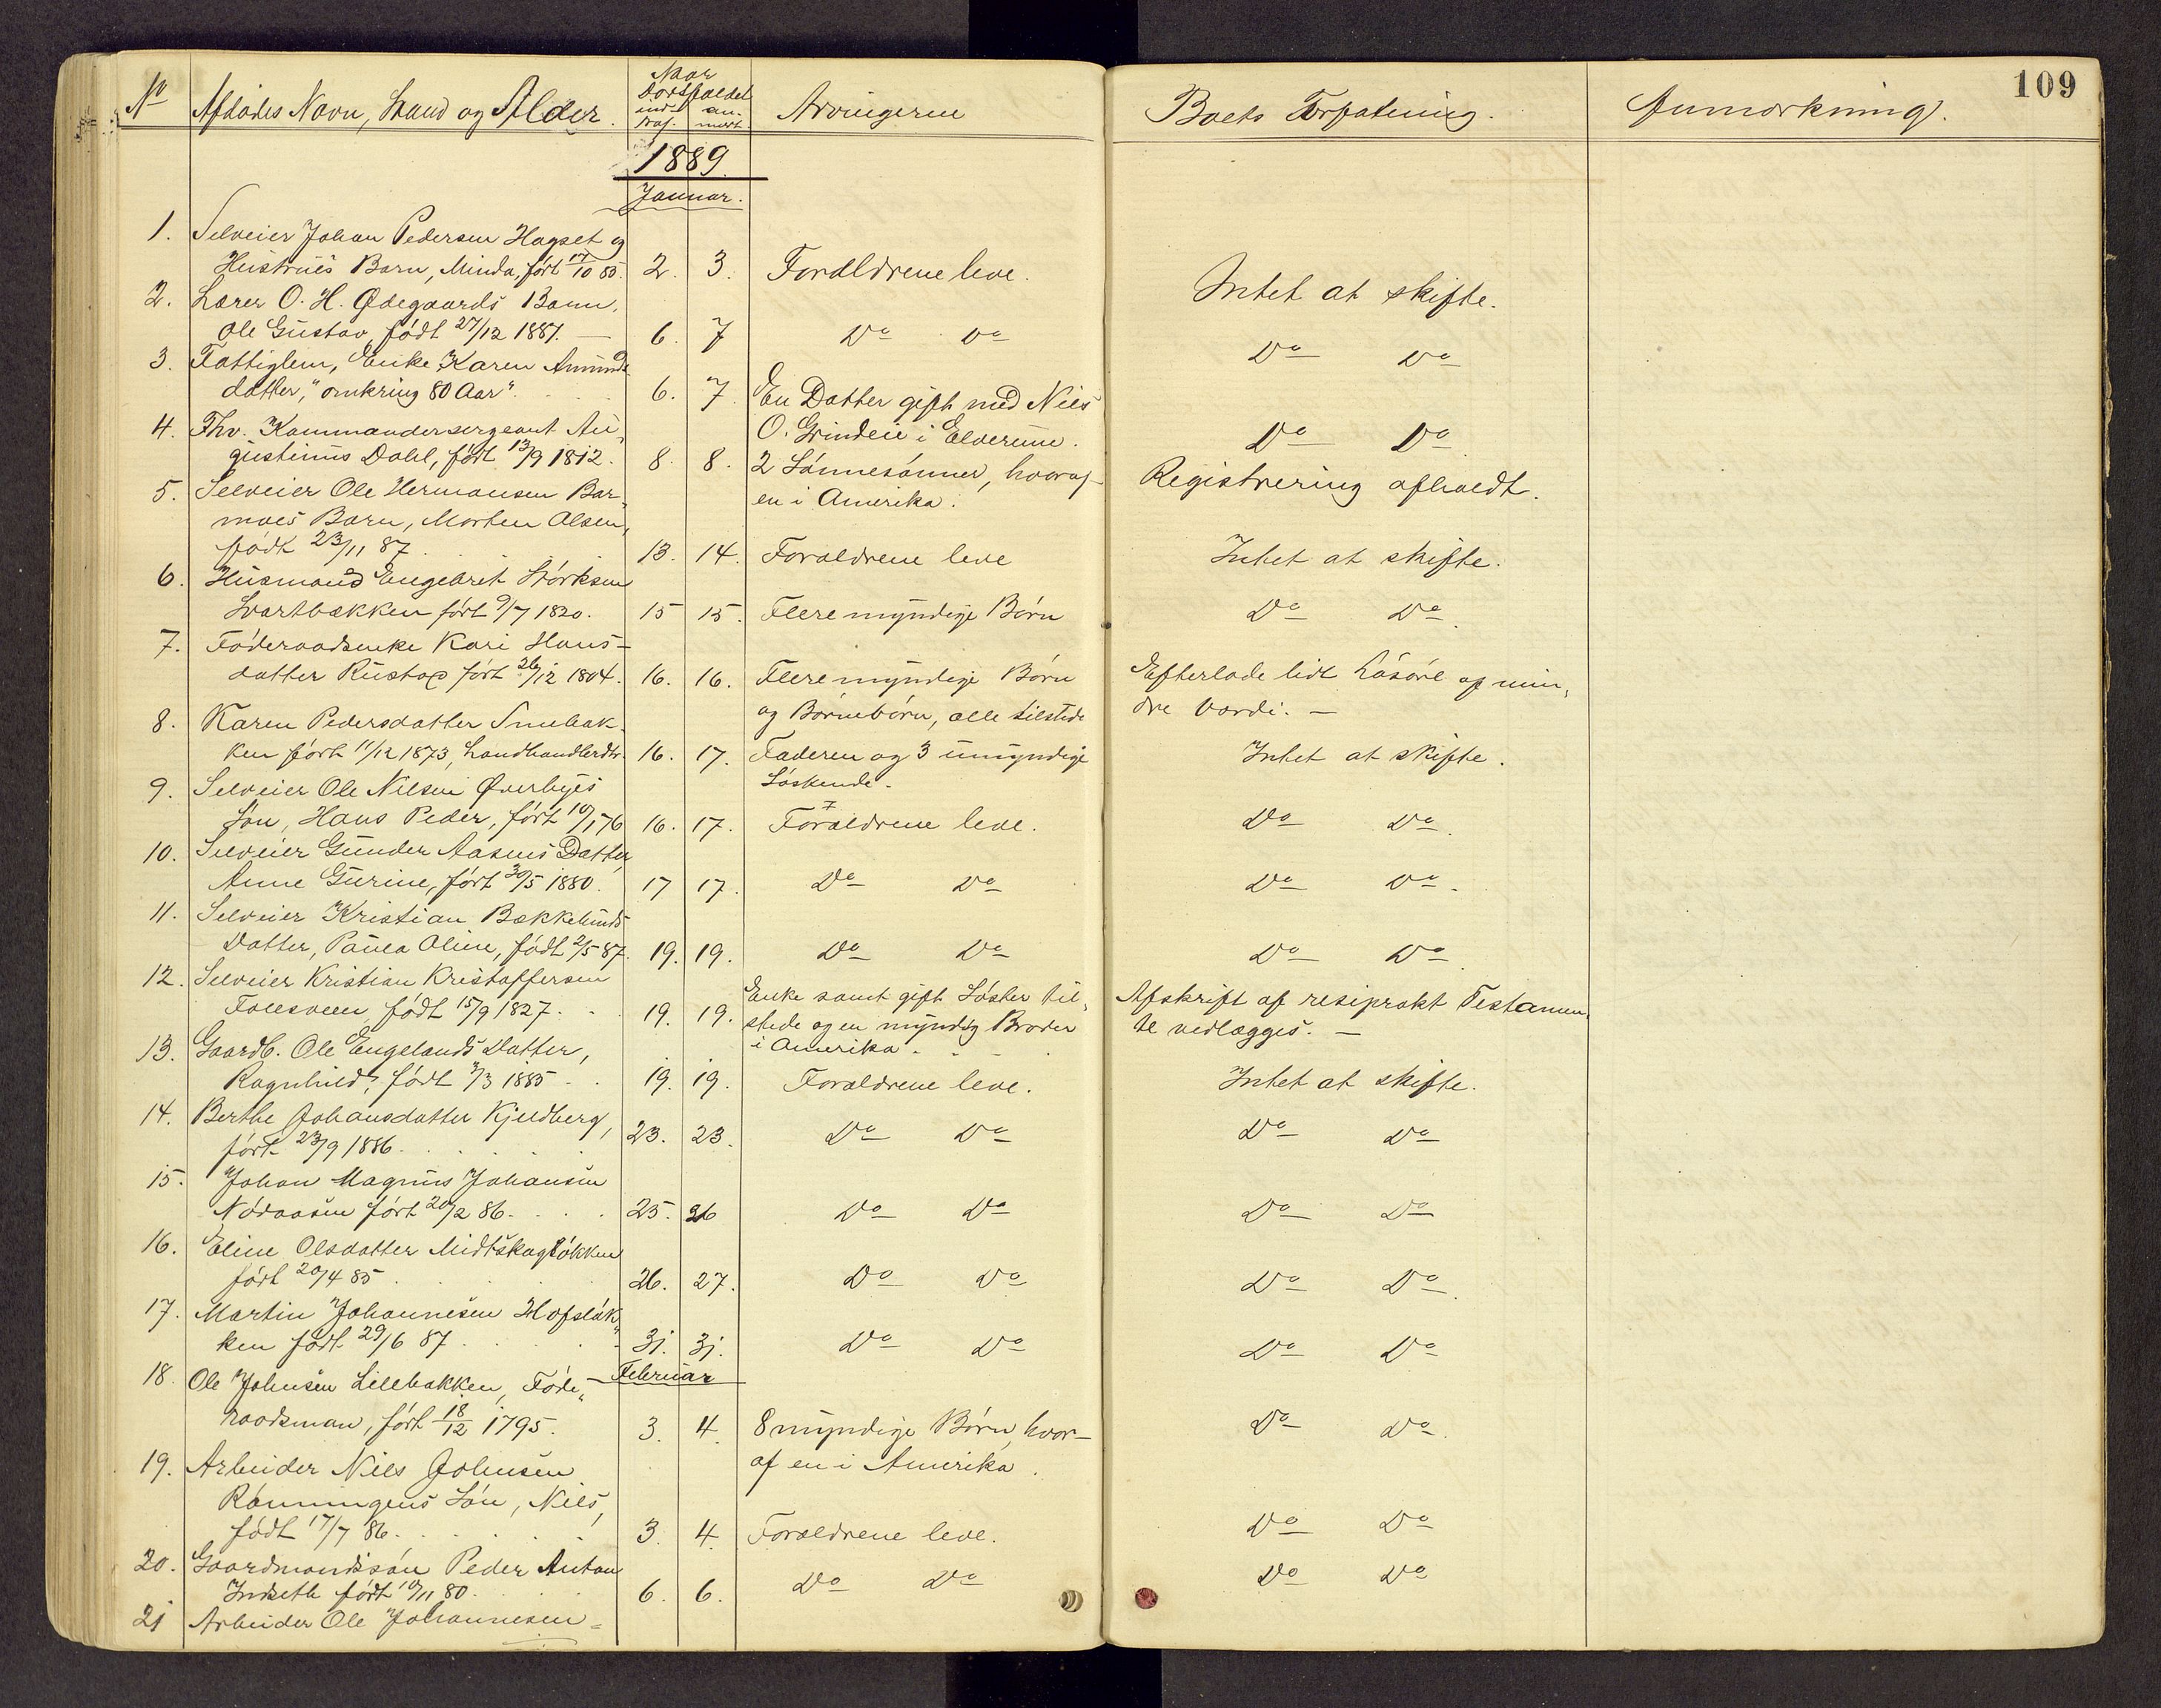 109
No Afdødes Navn, Stand og Alder. Naar Dødsfaldet indtraf. anmeldt. Arvingerne Boets Forfatning. Anmærkning.
1889.
Januar.
1. Selveier Johan Pedersen Hagset og
Hustrues Barn, Minda, født 17/10 85. 2. 3. Forældrene leve. Intet at skifte.
2. Lærer O. H. Ødegaards Barn,
Ole Gustav, født 27/12 1887. — 6. 7 Do Do Do Do
3. Fattiglem, Enke Karen Amunds
datter, "omkring 80 Aar". 6. 7. En Datter gift med Niels
O. Grindeie i Elverum. Do Do
4. Fhv. Kommandersergeant Au-
gustinus Dahl, født 13/9 1812. 8. 8. 2 Sønnesønner, hvoraf
en i Amerika. Registrering afholdt.
5. Selveier Ole Hermansen Bar-
moes Barn, Morten Olsen,
født 23/11 87. 13. 14. Forældrene leve Intet at skifte.
6. Husmand Engebret Størksen
Svartbækken født 9/7 1820. 15 15. Flere myndige Børn Do Do.
7. Føderaadsenke Kari Hans-
datter Rustad født 26/12 1804. 16. 16. Flere myndige Børn
og Børnebørn, alle tilstede Efterlade lidt Løsøre af min-
dre Værdi. —
8. Karen Pedersdatter Smebak-
ken født 11/12 1873, Landhandlerdtr. 16. 17. Faderen og 3 umyndige
Søskende. Intet at skifte.
9. Selveier Ole Nilsen Øverbyes
Søn, Hans Peder, født 10/1 76 16. 17. Forældrene leve. Do Do.
10. Selveier Gunder Aasens Datter,
Anne Gurine, født 30/5 1880. 17 17. Do Do Do Do.
11. Selveier Kristian Bækkelunds
Datter, Paula Oline, født 2/5 87. 19. 19. Do Do Do Do.
12. Selveier Kristian Kristoffersen
Fallesveen, født 15/9 1827. 19. 19. Enke samt gift Søster til-
stede og en myndig Broder
i Amerika. Afskrift af resiprokt Testamen-
te vedlægges. —
13. Gaardb. Ole Engelands Datter,
Ragnhild, født 3/3 1885 19. 19. Forældrene leve. Intet at skifte.
14. Berthe Johansdatter Kjeldberg,
født 23/9 1886. 23. 23. Do Do Do Do
15. Johan Magnus Johansen
Nødaasen født 20/2 86. 25. 26 Do Do Do Do
16. Eline Olsdatter Midtskogløkken
født 20/4 85. 26. 27. Do Do Do Do.
17. Martin Johannesen Hofsløk-
ken født 29/6 87. 31. 31. Do Do Do Do
Februar
18. Ole Johnsen Lillebakken, Føde-
raadsman, født 18/12 1795. 3. 4. 8 myndige Børn, hvor-
af en i Amerika. Do Do.
19. Arbeider Niels Johnsen
Rønningens Søn, Niels,
født 17/7 86. 3. 4. Forældrene leve. Do Do
20. Gaardmandssøn Peder Anton
Indseth født 10/11 80. 6. 6. Do Do Do Do
21 Arbeider Ole Johannesen-